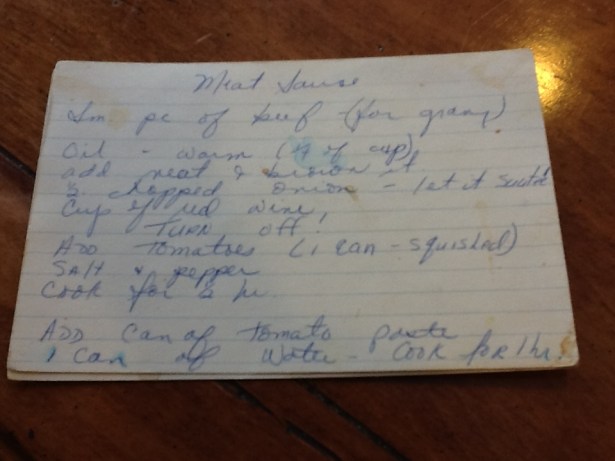 Meat Sause
Sm pc of beef (for gravy)
Oil - warm ( of cup)
add meat & brown it
chopped onion - let it
Cup of red wine,
TURN off!
ADD Tomatoes (1 can - squished)
SAlt & pepper
COOK for 2 hr
ADD Can of Tomato paste
1 Can of Water - COOK foR 1 hr.